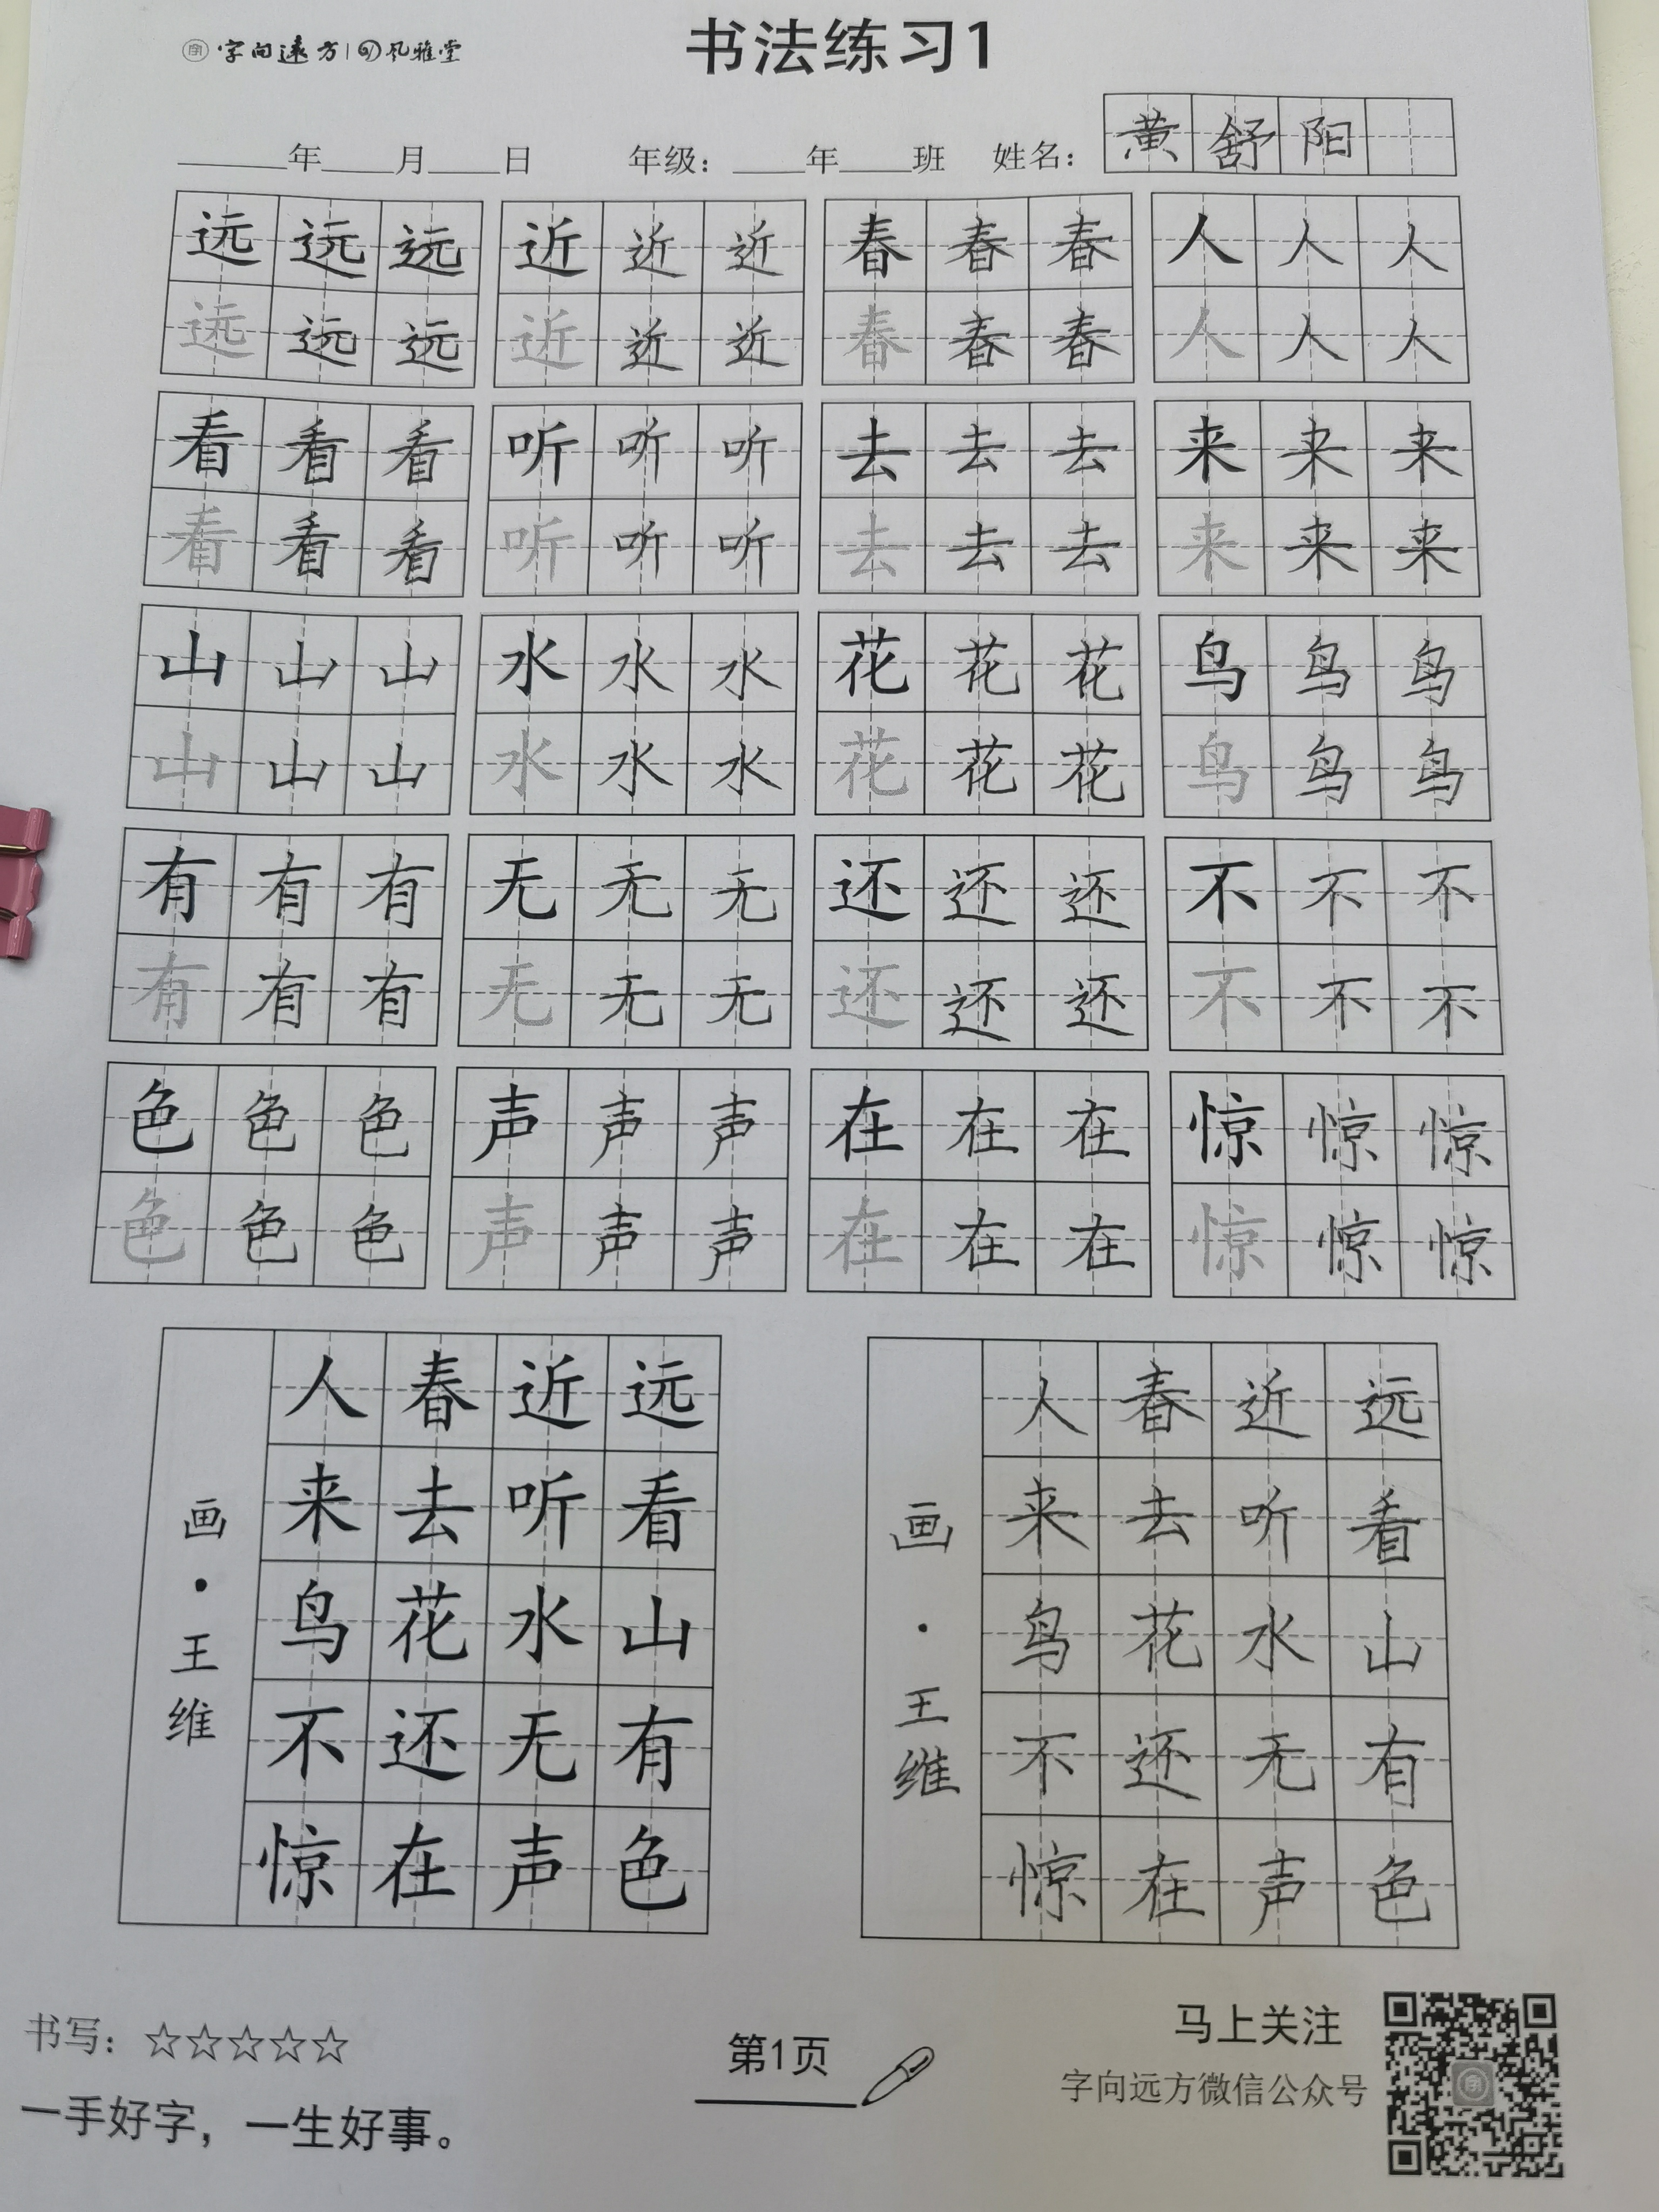 字向远方 风雅堂
书法练习1
____年____月____日 年级：____年____班 姓名：黄舒阳
远远远 近近近 春春春 人人人
远远远 近近近 春春春 人人人
看看看 听听听 去去去 来来来
看看看 听听听 去去去 来来来
山山山 水水水 花花花 鸟鸟鸟
山山山 水水水 花花花 鸟鸟鸟
有有有 无无无 还还还 不不不
有有有 无无无 还还还 不不不
色色色 声声声 在在在 惊惊惊
色色色 声声声 在在在 惊惊惊
远看山有色
近听水无声
春去花还在
人来鸟不惊
画·王维
远看山有色
近听水无声
春去花还在
人来鸟不惊
画·王维
书写：☆☆☆☆☆
一手好字，一生好事。
第1页
马上关注
字向远方微信公众号
字